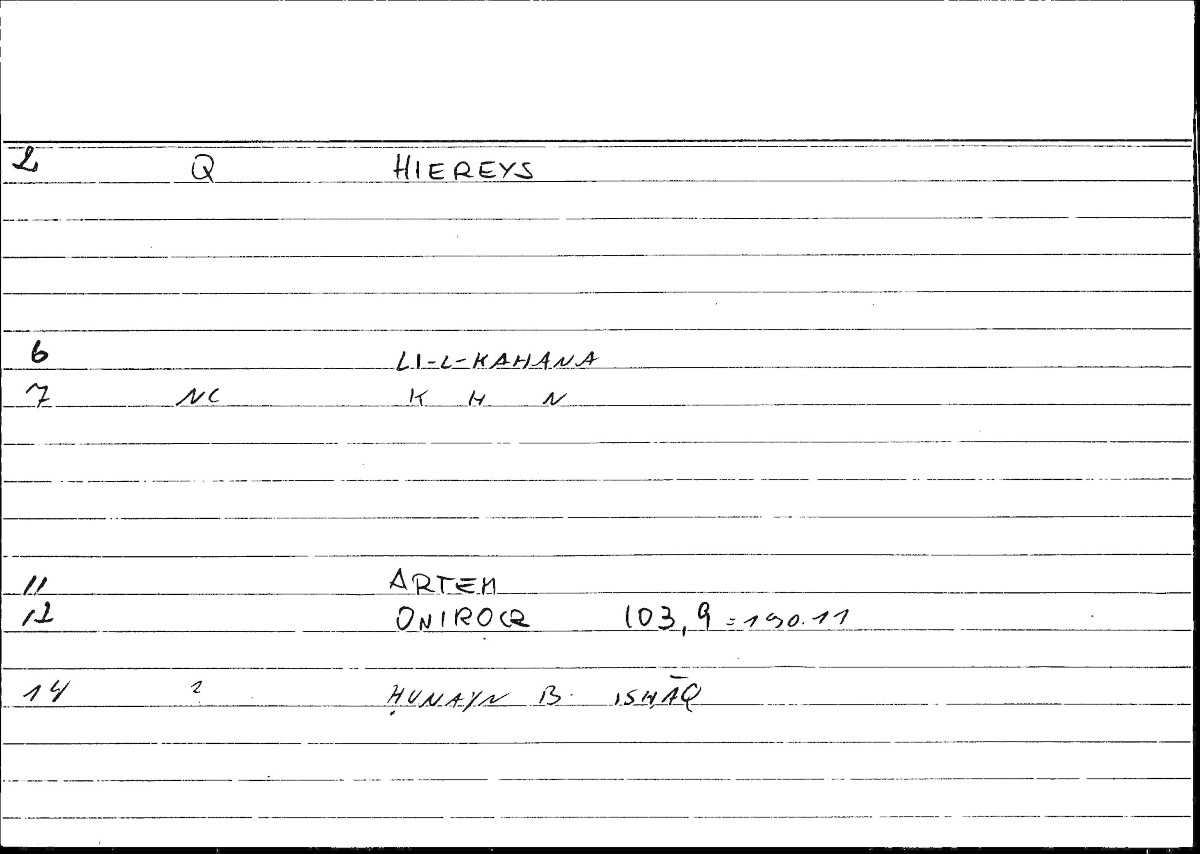 2 Q HIEREYS
6 LI-L-KAHANA
7 NC K H N
11 ARTEM
12 ONIROCR 103,9 = 190.11
14 2 ḤUNAYN B. ISḤĀQ